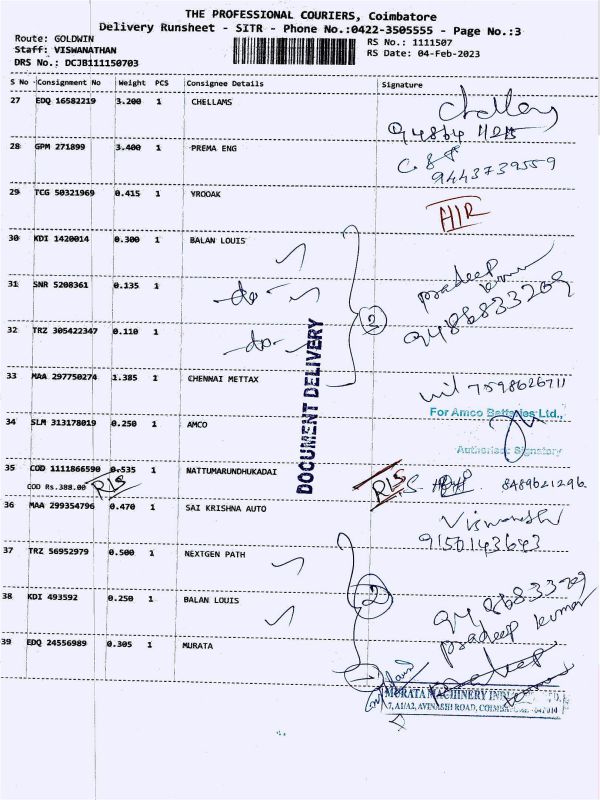 THE PROFESSIONAL COURIERS, Coimbatore
Delivery Runsheet - SITR - Phone No.:0422-3505555 - Page No.:3
Route: GOLDWIN
RS No.: 1111507
Staff: VISWANATHAN
RS Date: 04-Feb-2023
DRS No.: DCJB111150703
S No Consignment No Weight PCS Consignee Details Signature
27 EDQ 16582219 3.200 1 CHELLAMS
28 GPM 271899 3.400 1 PREMA ENG
9443739559
29 TCG 50321969 0.415 1 YROOAK
AIR
30 KDI 1420014 0.300 1 BALAN LOUIS
31 SNR 5208361 0.135 1 -do- pradeep kumar
32 TRZ 305422347 0.110 1 -do- 3 9486833209
DOCUMENT DELIVERY
33 MAA 297750274 1.385 1 CHENNAI METTAX 7598626711
For Amco Batteries Ltd.,
34 SLM 313178019 0.250 1 AMCO
Authorised Signatory
35 COD 1111866590 0.535 1 NATTUMARUNDHUKADAI RIS 8489621296
COD Rs.388.00 RIS
36 MAA 299354796 0.470 1 SAI KRISHNA AUTO
37 TRZ 56952979 0.500 1 NEXTGEN PATH
38 KDI 493592 0.250 1 BALAN LOUIS 2
pradeep kumar
39 EDQ 24556989 0.305 1 MURATA
1 pradeep kumar
MURATA MACHINERY
7, A1/A2, AVINASHI ROAD,